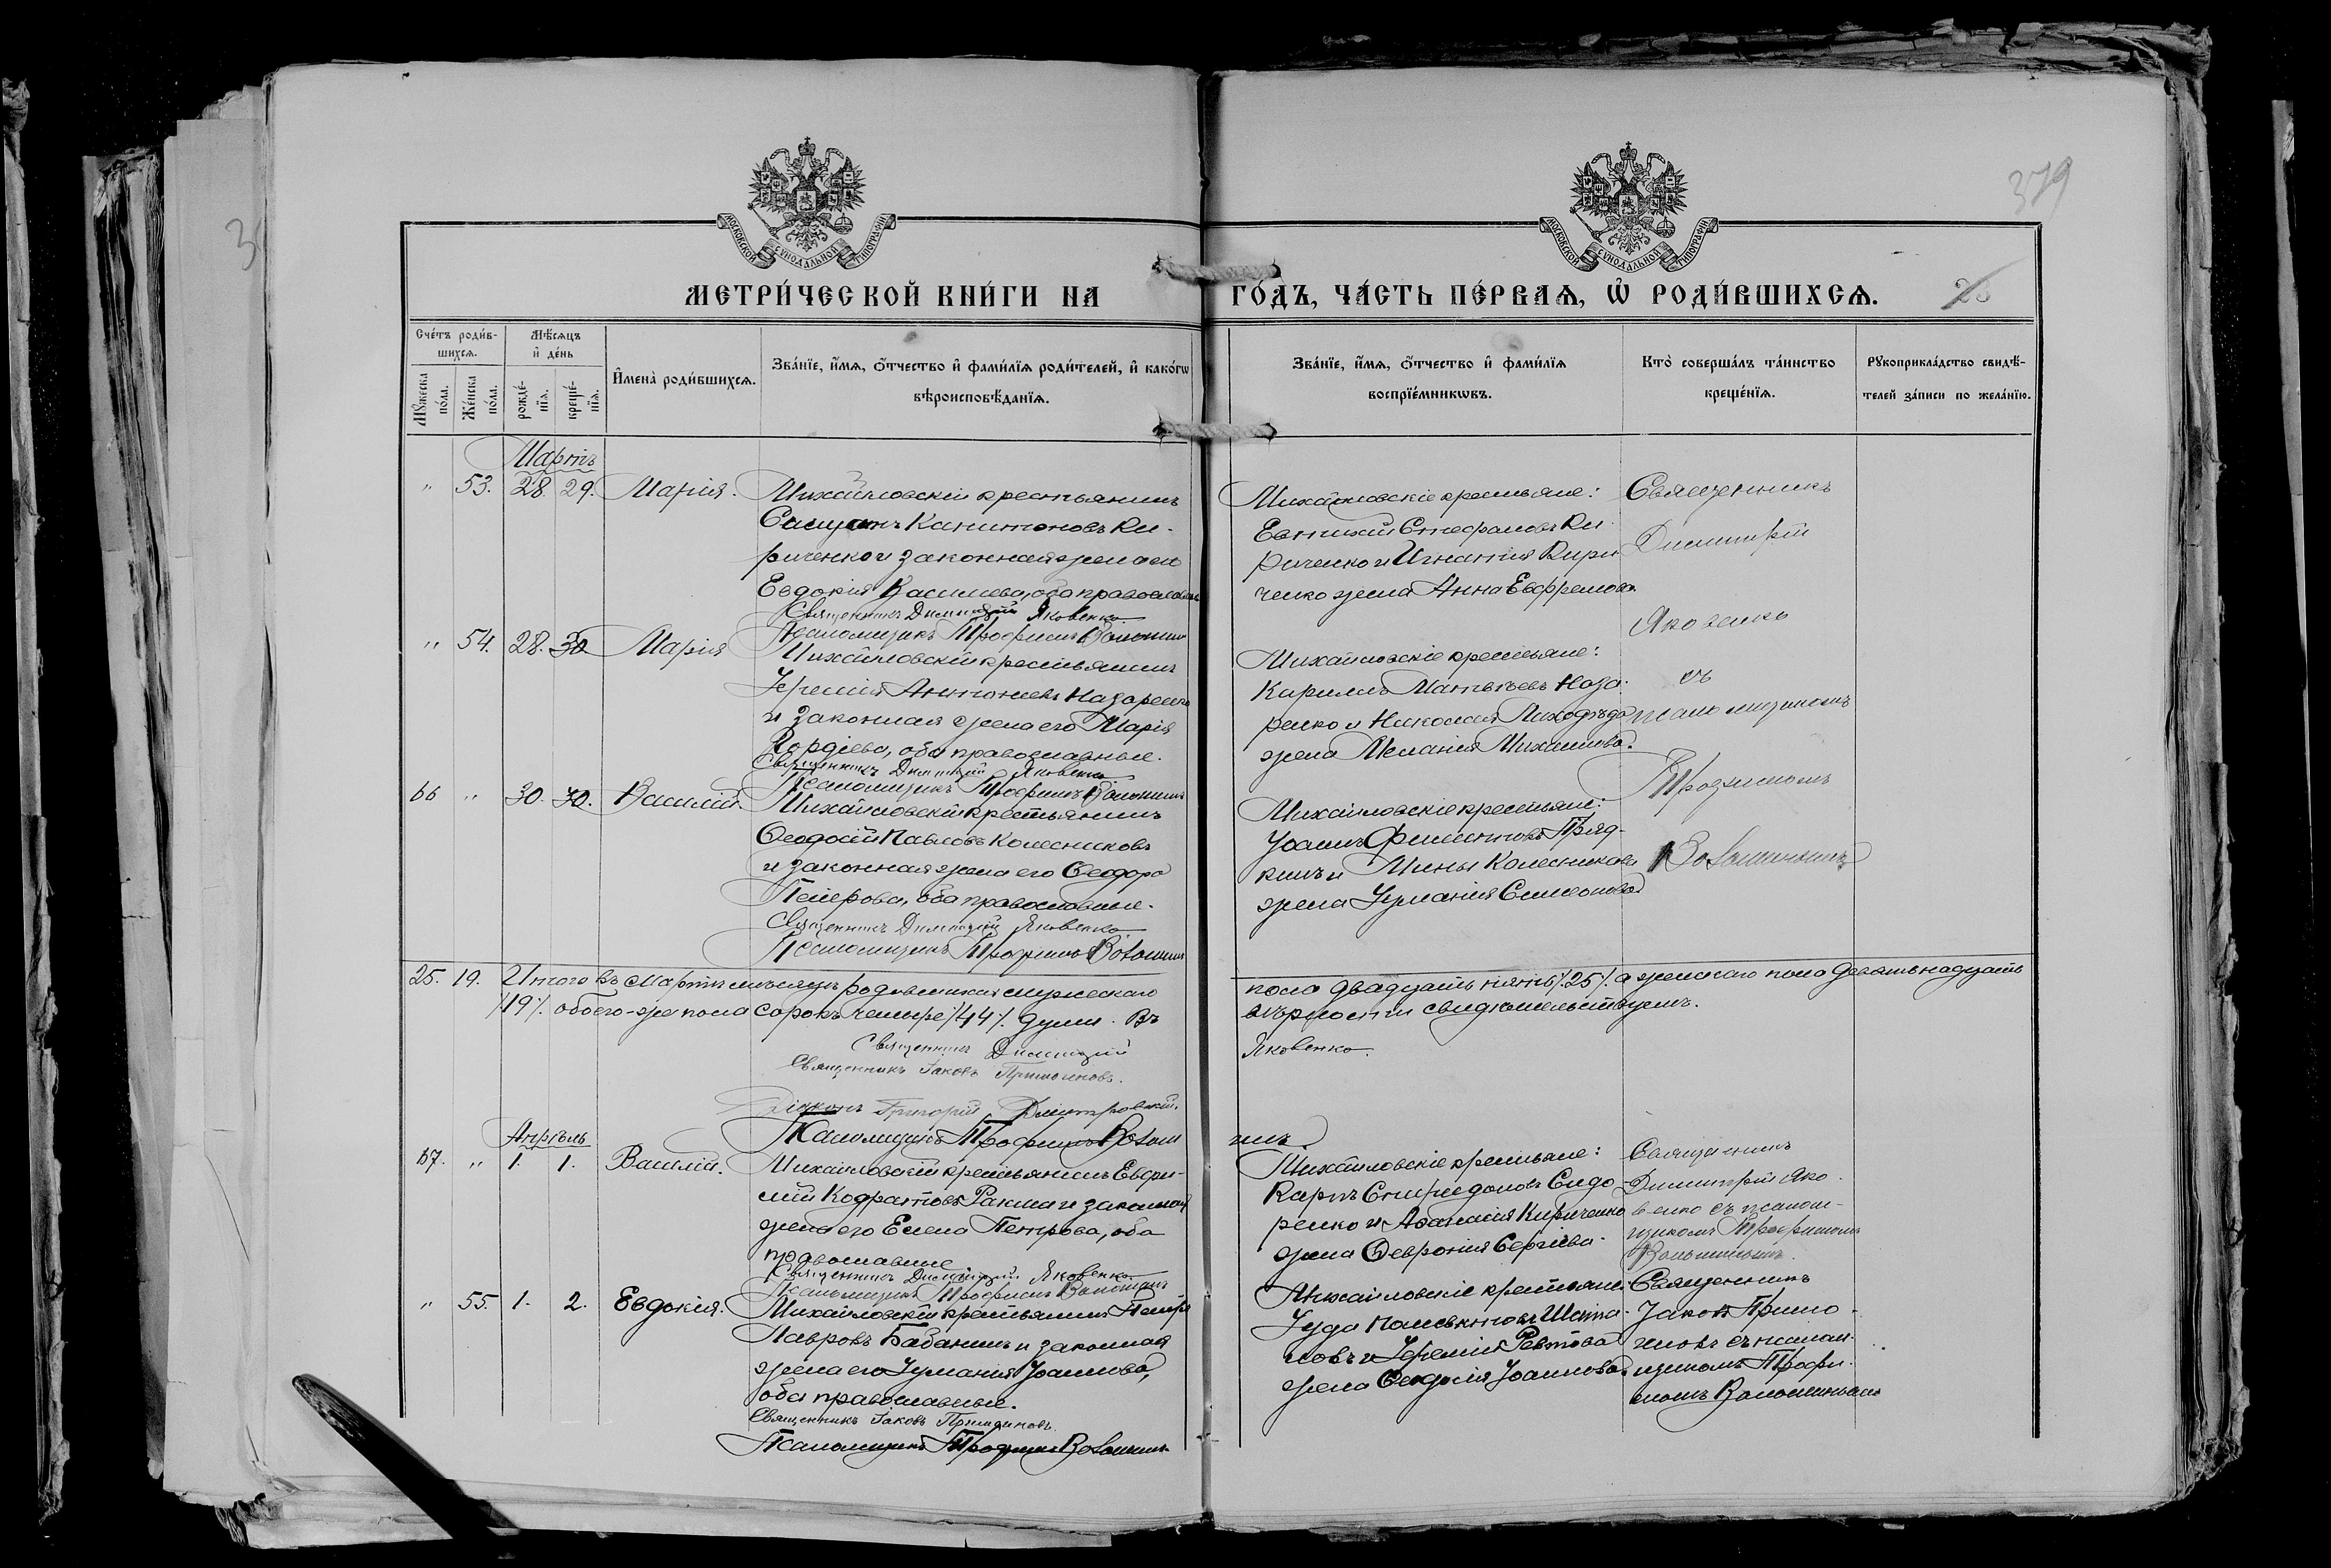 379
МОСКОВСКОЙ СѴНОДАЛЬНОЙ ТИПОГРАФІИ
МОСКОВСКОЙ СѴНОДАЛЬНОЙ ТИПОГРАФІИ
МЕТРИ́ЧЕСКОЙ КНИ́ГИ НА ГО́ДЪ, ЧА́СТЬ ПЕ́РВАѦ, Ѡ҆ РОДИ́ВШИХСѦ.
Сче́тъ роди́в-
шихсѧ.
Мꙋжеска по́ла.
Же́нска по́ла.
Мѣ́сѧцъ
и҆ де́нь
рожде́-
нїѧ.
креще́-
нїѧ.
И҆мена̀ роди́вшихсѧ.
Зва́нїе, и҆́мѧ, ѻ҆́тчество и҆ фами́лїѧ роди́телей, и҆ како́гѡ
вѣроисповѣ́данїѧ.
Зва́нїе, и҆́мѧ, ѻ҆́тчество и҆ фами́лїѧ
воспрїе́мникѡвъ.
Кто̀ соверша́лъ та́инство
креще́нїѧ.
Рꙋкоприкла́дство свидѣ́-
телей за́писи по жела́нїю.
Мартъ
" 53. 28. 29. Марія.
Михайловскій крестьянинъ
Капитоновъ Ки-
риченко и законная жена его
Евдокія Василиева, оба православные
Священникъ Димитрій Яковенко
Псаломщикъ Трофимъ Волошинъ
Михайловскіе крестьяне:
Евтихій Стефановъ Ки-
риченко и Игнатія Кири-
ченко жена Анна Евфремова.
Священникъ
Димитрій
Яковенко
съ
псаломщикомъ
Трофимомъ
Волошинымъ
" 54. 28. 30 Марія
Михайловскій крестьянинъ
Іеремія Антоніевъ Назаренко
и законная жена его Марія
Гордіева, оба православные.
Священникъ Димитрій Яковенко
Псаломщикъ Трофимъ Волошинъ
Михайловскіе крестьяне:
Кириллъ Матвѣевъ Наза-
ренко и Николая Лиходѣда
жена Меланія Михаилова.
66 " 30. 30. Василій.
Михайловскій крестьянинъ
Ѳеодосій Павловъ Колесниковъ
и законная жена его Ѳеодора
оба православные.
Священникъ Димитрій Яковенко
Псаломщикъ Трофимъ Волошинъ
Михайловскіе крестьяне:
Іоаннъ Филипповъ Пряд-
кинъ и Мины Колесникова
жена Іуліанія Симеонова
25. 19. Итого въ Мартѣ мѣсяцѣ родившихся мужескаго
пола двадцать пять /25/. а женскаго пола девятьнадцать
/19/. обоего-же пола сорокъ четыре /44/. души. Въ
вѣрности свидѣтельствуемъ.
Священникъ Димитрій
Яковенко.
Священникъ Іаковъ
Діаконъ Григорій Димитровскій.
Псаломщикъ Трофимъ Волоши
нъ.
Апрѣль
67. " 1. 1. Василій.
Михайловскій крестьянинъ Евфи-
мій и законная
жена его Елена Петрова, оба
православные
Священникъ Димитрій Яковенко
Псаломщикъ Трофимъ Волошинъ
Михайловскіе крестьяне:
Карпъ Спиридоновъ Сидо-
ренко и Аѳанасія Кириченко
жена Ѳевронія Сергіева.
Священникъ
Димитрій Яко-
венко съ псалом-
щикомъ Трофимомъ
Волошинымъ.
" 55. 1. 2. Евдокія.
Михайловскій крестьянинъ Петръ
Лавровъ Бабанинъ и законная
жена его Іуліанія Іоаннова,
оба православные.
Священникъ Іаковъ
Псаломщикъ Трофимъ Волошинъ
Михайловскіе крестьяне:
Іуда
новъ и Іереміи
жена Ѳеодосія Іоаннова.
Священникъ
Іаковъ
съ псалом-
щикомъ Трофи-
момъ Волошинымъ